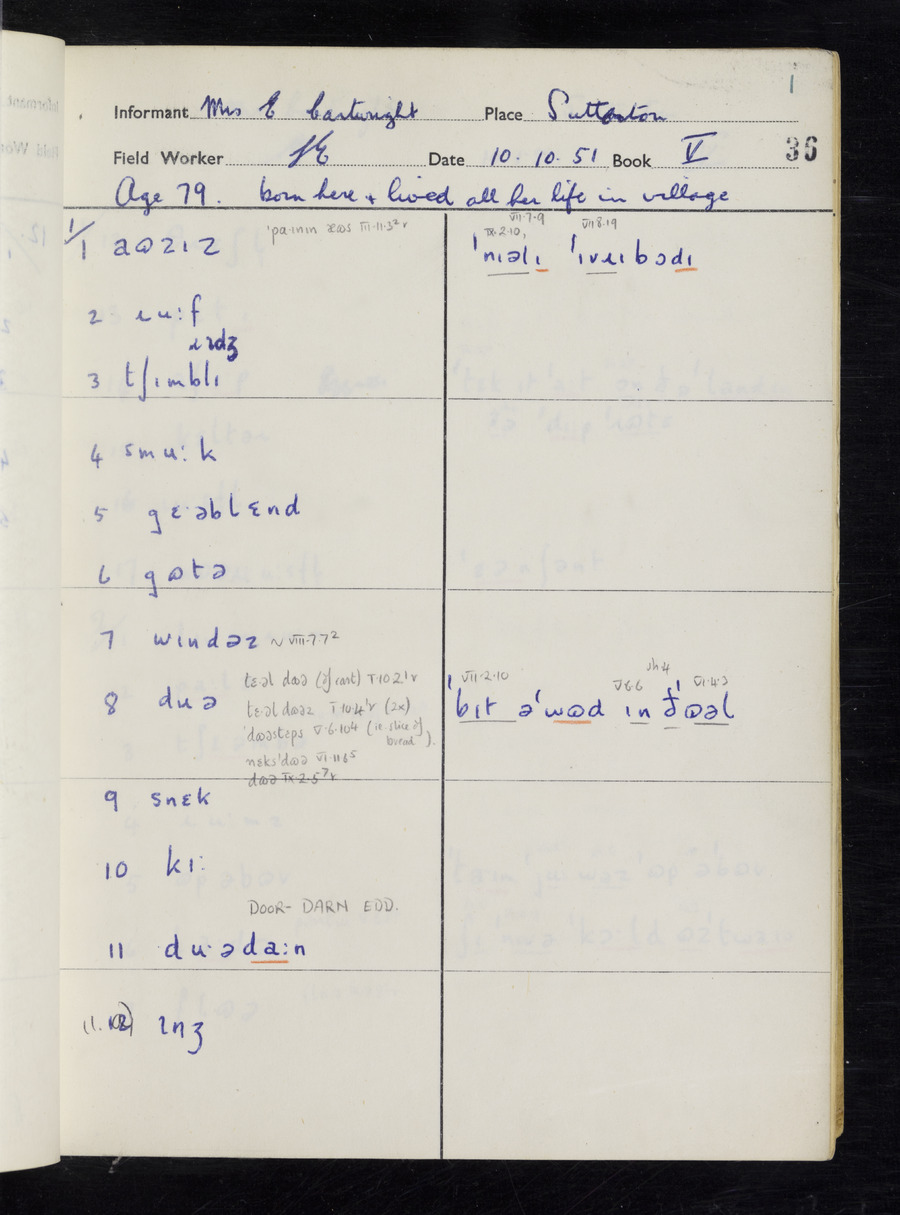 1
Informant Mrs E Cartwright Place Sutterton
Field Worker Date 10. 10. 51 Book V 36
Age 79. born here + lived all her life in village
1/1 aɷzɪz
ˈnɪəlɪ ˈɪvɹɪbɔdɪ
IX.2.10, VII.7.9 VII.8.19
2 ɹu:f
ɹɪdʒ
3 tʃɪmblɪ
4 smu:k
5 gɛ·əblɛnd
6 gɷtə
7 wɪndəz ~ VIII.7.7²
8 duə
tɛ·əl dɷə (of cart) I.10.2¹r
tɛ·əl dɷəz I.10.4¹r (2x)
ˈdɷəstɛps V.6.10⁴ (i.e. slice of bread).
nɛksˈdɷə VI.11.6⁵
dɷə IX.2.5⁷r
VII.2.10 V.6.6 sh.4 VI.4.3
ˈbɪt əˈwɷd ɪn ðˈɷəl
9 snɛk
10 kɪ:
DOOR-DARN EDD.
11 du·əda:n
ɪnʒ